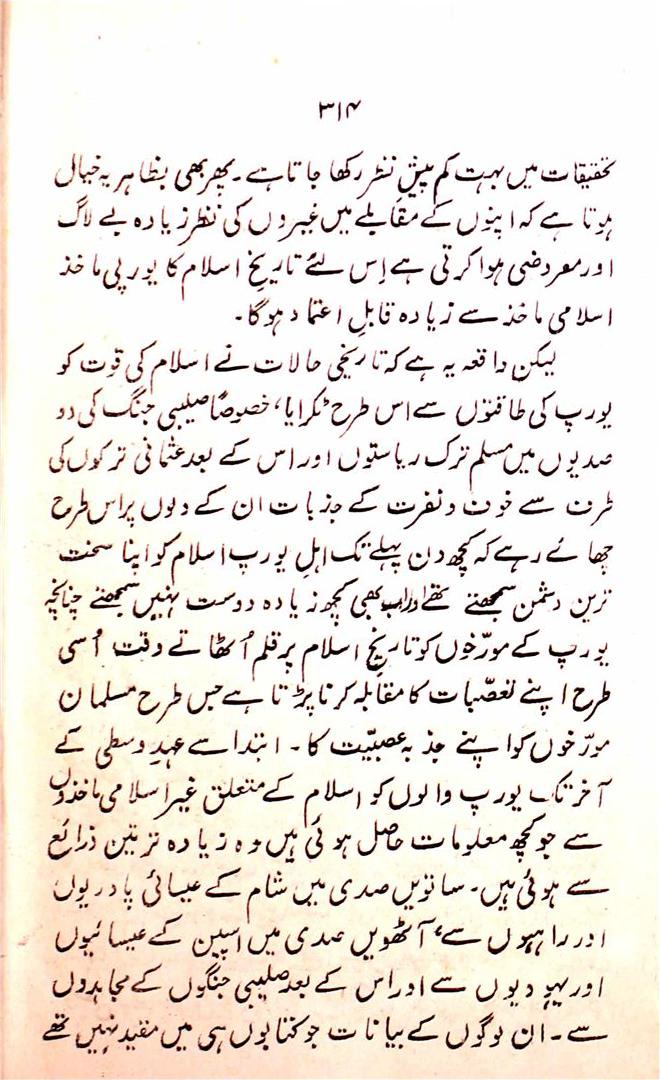 ۳۱۴
تحقیقات میں بہت کم پیشِ نظر رکھا جاتا ہے۔ پھر بھی بظاہر یہ خیال
ہوتا ہے کہ اپنوں کے مقابلے میں غیروں کی نظر زیادہ بے لاگ
اور معروضی ہوا کرتی ہے اِس لئے تاریخِ اسلام کا یورپی ماخذ
اسلامی ماخذ سے زیادہ قابلِ اعتماد ہوگا۔
لیکن واقعہ یہ ہے کہ تاریخی حالات نے اسلام کی قوت کو
یورپ کی طاقتوں سے اس طرح ٹکرایا، خصوصاً صلیبی جنگ کی دو
صدیوں میں مسلم ترک ریاستوں اور اس کے بعد عثمانی ترکوں کی
طرف سے خوف و نفرت کے جذبات ان کے دلوں پر اس طرح
چھائے رہے کہ کچھ دن پہلے تک اہلِ یورپ اسلام کو اپنا سخت
ترین دشمن سمجھتے تھے اور اب بھی کچھ زیادہ دوست نہیں سمجھتے چنانچہ
یورپ کے مورّخوں کو تاریخِ اسلام پر قلم اُٹھاتے وقت اُسی
طرح اپنے تعصّبات کا مقابلہ کرنا پڑتا ہے جس طرح مسلمان
مورّخوں کو اپنے جذبہ عصبیّت کا۔ ابتدا سے عہدِ وسطیٰ کے
آخر تک یورپ والوں کو اسلام کے متعلق غیر اسلامی ماخذوں
سے جو کچھ معلومات حاصل ہوئی ہیں وہ زیادہ تر تین ذرائع
سے ہوئی ہیں۔ ساتویں صدی میں شام کے عیسائی پادریوں
اور راہبوں سے، آٹھویں صدی میں اسپین کے عیسائیوں
اور یہودیوں سے اور اس کے بعد صلیبی جنگوں کے مجاہدوں
سے۔ ان لوگوں کے بیانات جو کتابوں ہی میں مقید نہیں تھے